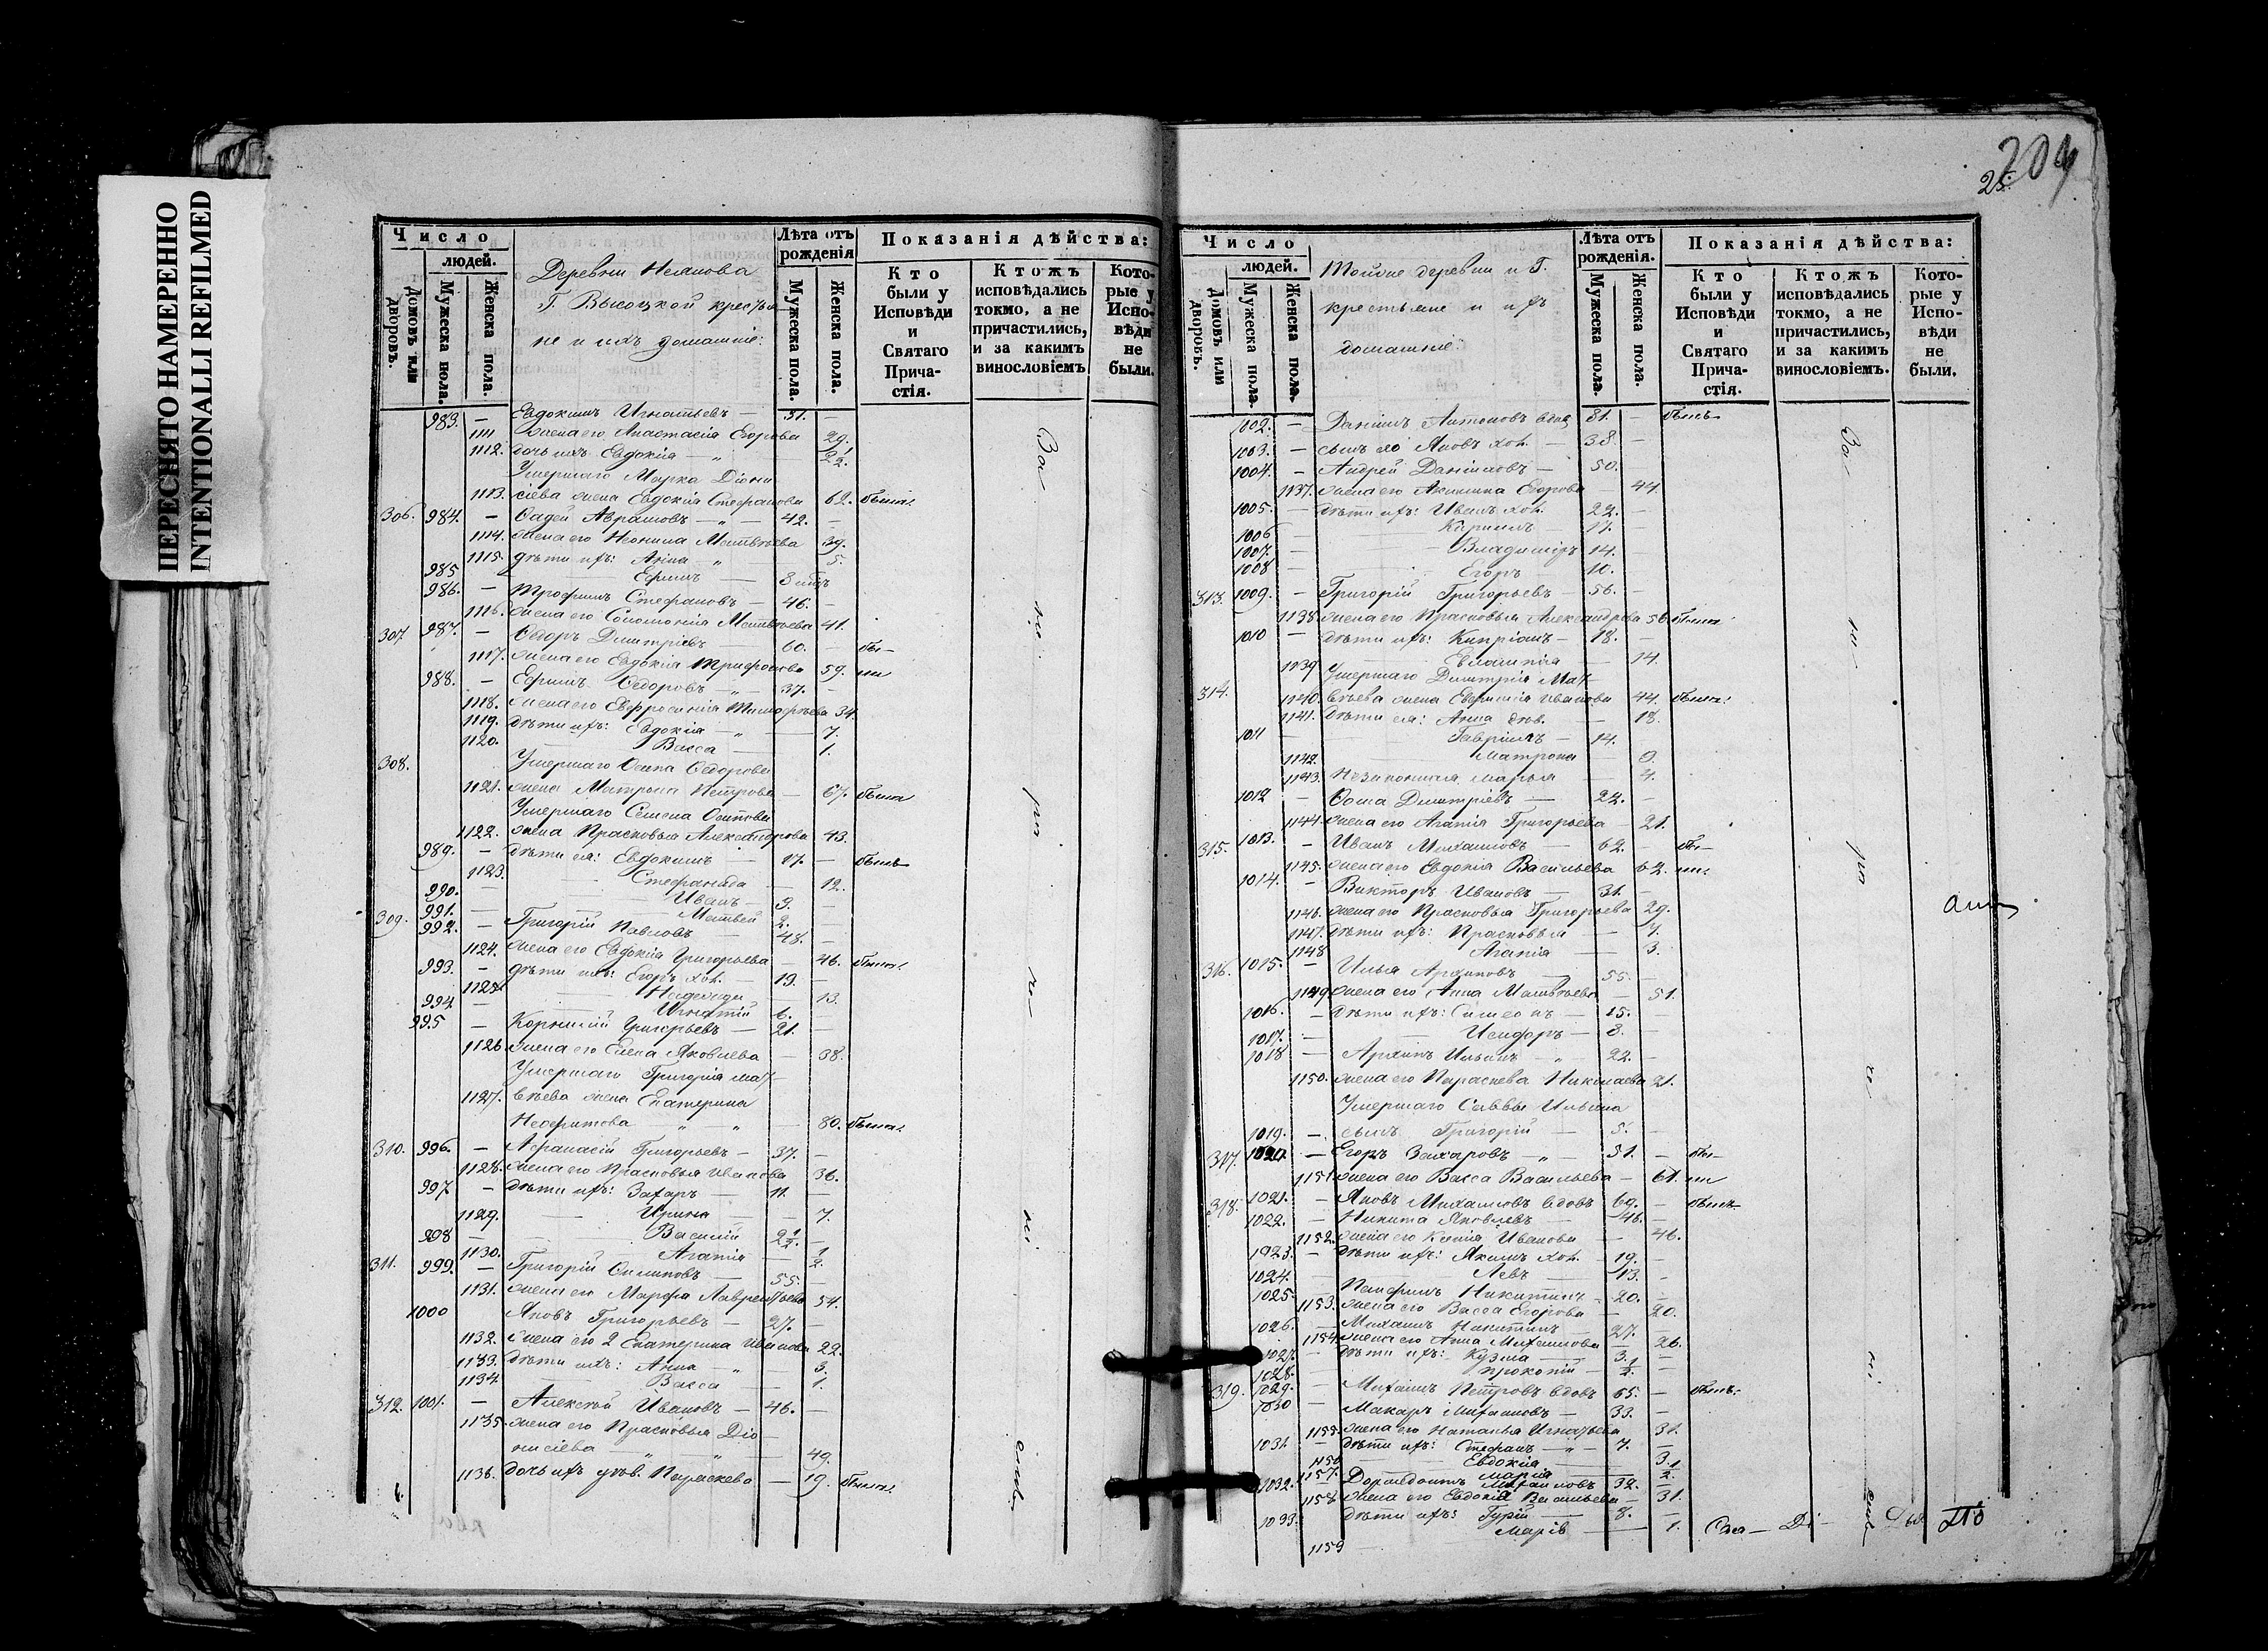 ПЕРЕСНЯТО НАМЕРЕННО
INTENTIONALLI REFILMED
Число
людей.
Домовъ или дворовъ.
Мужеска пола.
Женска пола.
Деревни
Г. Высоцкой крестья-
не и ихъ домашніе:
Лѣта отъ рожденія
Мужеска пола.
Женска пола.
Показанія дѣйства:
Кто были у Исповѣди и Святаго Причастія.
Ктожъ исповѣдались токмо, а не причастились, и за какимъ винословіемъ
Которые у Исповѣди не были.
983. — Евдокимъ Игнатьевъ — 31. —
1111 жена его Анастасія Егорова 29.
1112. дочь ихъ Евдокія — „ 2 1/2.
Умершаго Марка Діони
1113. сіева жена Евдокія Стефанова 62. была.
306. 984. — Фадей Аврамовъ — „ — 42. —
1114. жена его Неонила Матвѣева 39.
1115. дѣти ихъ: Анна „ — 5.
985 — Ефимъ — 3
986. — Трофимъ Стефановъ — 46. —
1116. жена его Соломонія Матвѣева 41.
307 987. — Ѳедоръ Димитріевъ — 60. — бы—
1117. жена его Евдокія Трифонова 59. ли
988. — Ефимъ Ѳедоровъ — „ — 37. —
1118. жена его Евфросинія Тимофѣева 34.
1119. дѣти ихъ: Евдокія — „ — 7.
1120. — Васса — 1.
308. Умершаго Осипа Ѳедорова
1121. жена Матрона Петрова — 67. была
Умершаго Семена Осипова
1122. жена Прасковья Александрова 43.
989. — дѣти ея: Евдокимъ — 17. — былъ
1123. — Стефанида — 12.
990. — Иванъ — 9. —
991. — Матвей 2. —
309. 992. — Григорій Павловъ — 48. —
1124. жена его Евдокія Григорьева — 46. была.
993. — дѣти ихъ: Егоръ хол. — 19. —
1125. — Надежда — 13.
994 — Игнатій 6. —
995 — Корнилій Григорьевъ — 21. —
1126 жена его Елена Яковлева — 38.
Умершаго Григорія Мат—
1127. вѣева жена Екатерина
Неофитова — „ — „ — 80. была.
310. 996. — Афанасій Григорьевъ — 37. —
1128. жена его Прасковья Иванова 36.
997 — дѣти ихъ: Захаръ — 11. —
1129. — Ирина — 7.
998 — Василій 2 1/2. —
1130. Агапія — 1/2.
311. 999. — Григорій Филиповъ — 55. —
1131. жена его Марфа Лаврентьева 54.
1000 Яковъ Григорьевъ — 27. —
1132. жена его 2 Екатерина Иванова 22.
1133. дѣти ихъ: Анна — „ 3.
1134. — Васса — 1.
312. 1001. — Алексѣй Ивановъ — 46. —
1135. жена его Прасковья Діо—
нисіева — „ — 49.
1136. дочь ихъ дѣв. Параскева — 19. была.
Во
всѣ
ро
ко
204
25.
Число
людей.
Домовъ или дворовъ.
Мужеска пола.
Женска пола.
Тойже деревни и Г.
крестьяне и ихъ
домашніе.
Лѣта отъ рожденія.
Мужеска пола.
Женска пола.
Показанія дѣйства:
Кто были у Исповѣди и Святаго Причастія.
Ктожъ исповѣдались токмо, а не причастились, и за какимъ винословіемъ.
Которые у Исповѣди не были.
1002. — Даніилъ Антоновъ вдов 81. — былъ
1003. — сынъ его Яковъ хол. — 38 —
1004. — Андрей Даніиловъ — 50. —
1137. жена его Акилина Егорова — 44.
1005. — дѣти ихъ: Иванъ хол. 22. —
1006 — Кириллъ — 17. —
1007. — Владиміръ 14. —
1008 — Егоръ — 10. —
313. 1009. — Григорій Григорьевъ — 56. —
1138. жена его Прасковья Александрова 56 была.
1010 — дѣти ихъ: Кипріанъ — 18. —
1139 Евлампія — 14.
314. Умершаго Димитрія Мат—
1140. вѣева жена Евфимія Иванова 44. была.
1141. дѣти ея: Анна дѣв. — 18.
1011 — Гавріилъ — 14.
1142. Матрона — 9.
1143. Незаконная Марья — 4.
1012 — Ѳома Димитріевъ — 22. —
1144. жена его Агапія Григорьева — 21.
315. 1013. — Иванъ Михаиловъ — 62. — бы—
1145. жена его Евдокія Васильева 62. ли.
1014. — Викторъ Ивановъ — 31. —
1146. жена его Прасковья Григорьева 29.
1147. дѣти ихъ: Прасковья — 7.
1148 Агапія — 3.
316. 1015. — Илья Архиповъ — 55. —
1149. жена его Анна Матвѣева — 51.
1016. — дѣти ихъ: Симеонъ — 15. —
1017. — Исидоръ — 8. —
1018 — Архипъ Ильинъ — „ — 22. —
1150. жена его Параскева Николаева 21.
Умершаго Саввы Ильина
1019. — сынъ Григорій — 5. —
317. 1020. — Егоръ Захаровъ — „ — 51. — бы—
1151. жена его Васса Васильева — 61. ли
318. 1021. — Яковъ Михаиловъ вдовъ 69. — былъ
1022. — Никита Яковлевъ — 46. —
1152. жена его Ксенія Иванова — 46.
1923. — дѣти ихъ: Якимъ хол. — 19. —
1024. — Левъ — 13. —
1025. — Памфилъ Никитинъ — 20. —
1153. жена его Васса Егорова — 20.
1026. — Михаилъ Никитинъ — 27. —
1154. жена его Анна Михаилова — 26.
1027. — дѣти ихъ: Кузма — 3. —
1028. — Прокопій — 1/2. —
319. 1029. — Михаилъ Петровъ вдовъ 65. — былъ.
1030 — Макаръ Михаиловъ — 33. —
1155. жена его Наталья Игнатьева 31.
1031. — дѣти ихъ: Стефанъ — „ — 7. —
1156 Евдокія — 3.
1157. Марія — 1/2.
1032. Дормедонтъ Михаиловъ 32. —
1158. жена его Евдокія Васильева — 31.
1033. дѣти ихъ: Гурій — 8. —
1159 Марія — 1.
Во
ро
ко